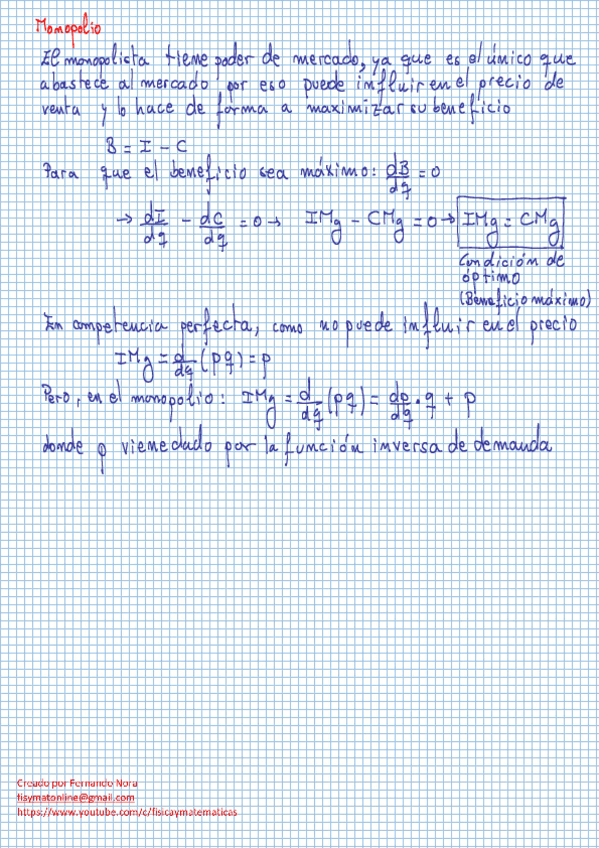 Monopolio
El monopolista tiene poder de mercado, ya que es el único que
abastece al mercado por eso puede influir en el precio de
venta y lo hace de forma a maximizar su beneficio
B = I - C
Para que el beneficio sea máximo: dB/dq = 0
→ dI/dq - dC/dq = 0 → IMg - CMg = 0 → IMg = CMg
Condición de
óptimo
(Beneficio máximo)
En competencia perfecta, como no puede influir en el precio
IMg = d/dq (pq) = p
Pero, en el monopolio: IMg = d/dq (pq) = dp/dq · q + p
donde p viene dado por la función inversa de demanda
Creado por Fernando Nora
fisymatonline@gmail.com
https://www.youtube.com/c/fisicaymatematicas